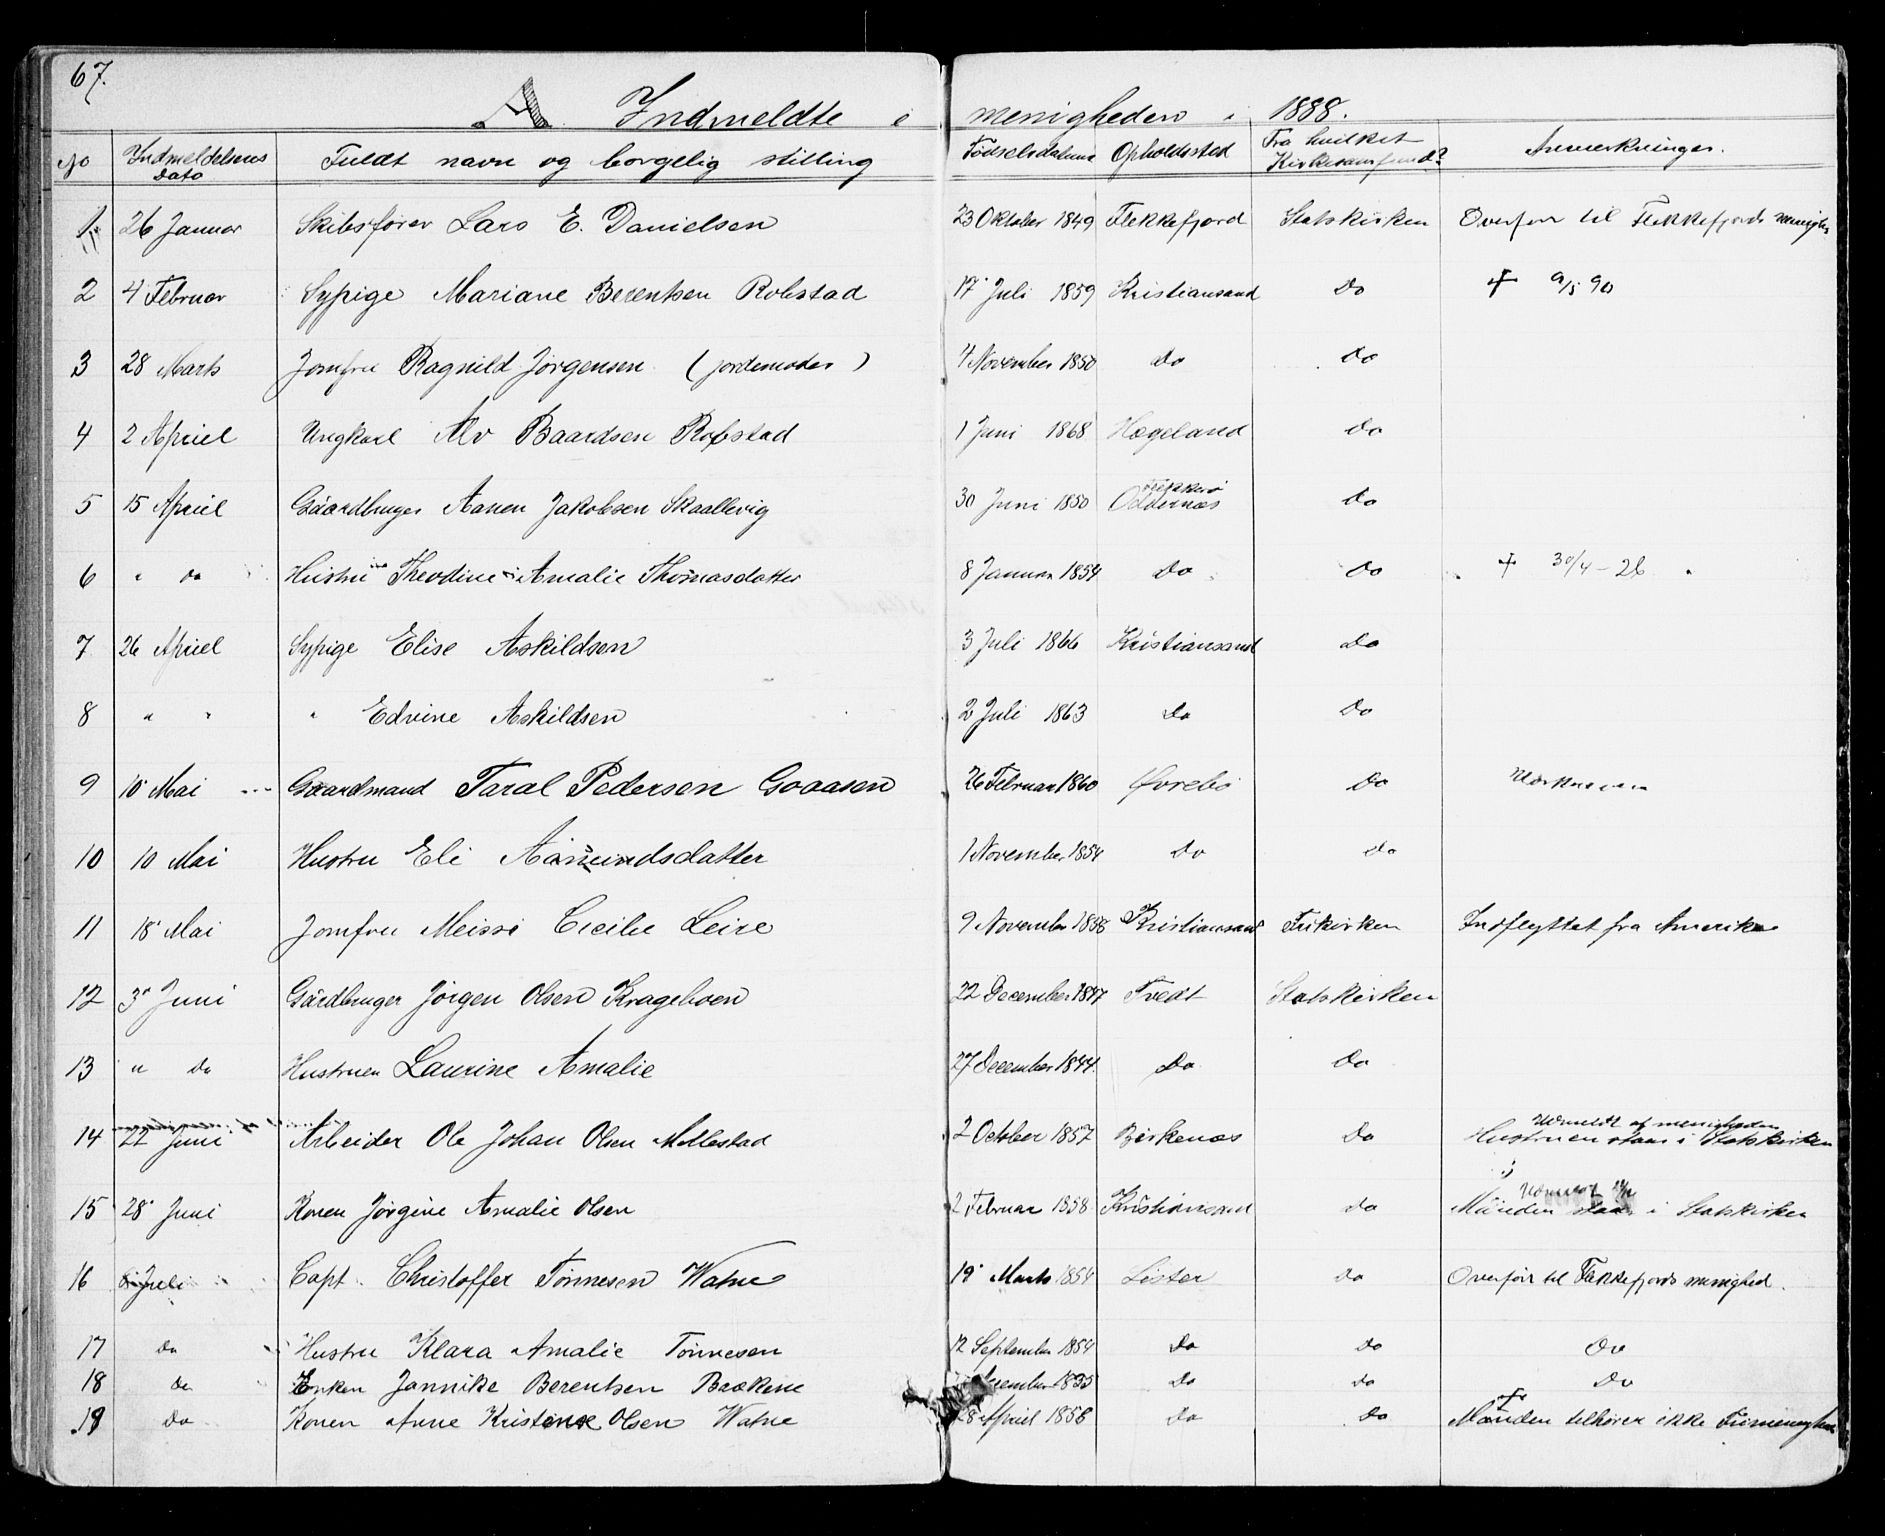 67.
A Indmeldte i menigheden i 1888.
No Indmeldelsens Dato Fuldt navn og borgelig stilling Fødselsdatum Opholdssted Fra hvilket Kirkesamfund? Anmerkninger.
1. 26 Januar Skibsfører Lars E. Danielsen 23 Oktober 1849 Flekkefjord Statskirken Overført til Flekkefjords
2 4 Februar Sypige Mariane Berentsen Robstad 17 Juli 1859 Kristiansand Do † 9/5 90
3 28 Marts Jomfru Ragnild Jørgensen (jordemoder) 4 November 1850 Do Do
4 2 Apriel Ungkarl Alv Baardsen Robstad 1 Juni 1868 Hægeland Do
5 15 Apriel Gaardbruger Aanen Jakobsen Skaallevig 30 Juni 1850 Flekkerø Oddernæs Do
6 " Do Hustru Theodine Amalie Thomasdatter 8 Januar 1854 Do Do † 30/4 - 26
7 26 Apriel Sypige Elise Askildsen 3 Juli 1866 Kristiansand Do
8 " " " Edvine Askildsen 2 Juli 1863 Do Do
9 10 Mai Gaardmand Taral Pedersen Goaasen 26 Februar 1860 Øvrebø Do
10 10 Mai Hustru Eli Aamundsdatter 1 November 1854 Do Do
11 18 Mai Jomfru Meissi Cicilie Leire 9 November Kristiansand Frikirken Indflyttet fra Amerika
12 3 Juni Gårdbruger Jørgen Olsen Krageboen 22 December 1847 Tvedt Statskirken
13 " Do Hustruen Laurine Amalie 27 December 1844. Do Do
14 22 Juni Arbeider Ole Johan Olsen Mollestad 2 October 1857 Birkenæs Do Udmeldt af menigheden Hustruen staar i Statskirken
15 28 Juni Konen Jørgine Amalie Olsen 2 Februar 1858 Kristiansand Do Manden staar i Statskirken
16 Juli Capt. Christoffer Tønnesen Watne 19 Marts 1854 Lister Do Overført til Flekkefjords menighed.
17 Do Hustru Klara Amalie Tønnesen 12 September 1854 Do Do Do
18 Do Enken Jannike Berentsen Brækene 1835 Do Do Do
19 Do Konen Anne Kristine Olsen Watne 28 Apriel 1856 Do Do † Manden tilhører ikke